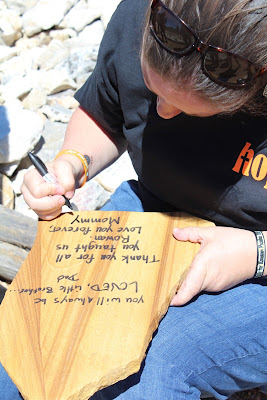 you will always be
LOVED, Little Brother...
Dad
Thank you for all
you taught us
Rowan.
Love you forever,
Mommy